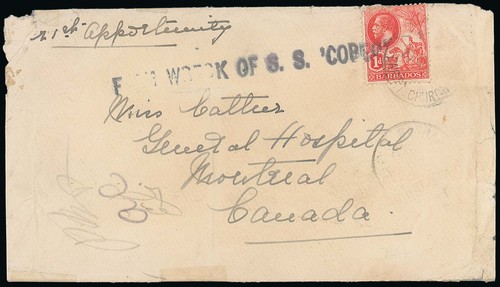 1st Apportunity
FROM WRECK OF S. S. 'COPE
1d
BARBADOS
CHURCH
Miss Cattley
General Hospital
Montreal
Canada.